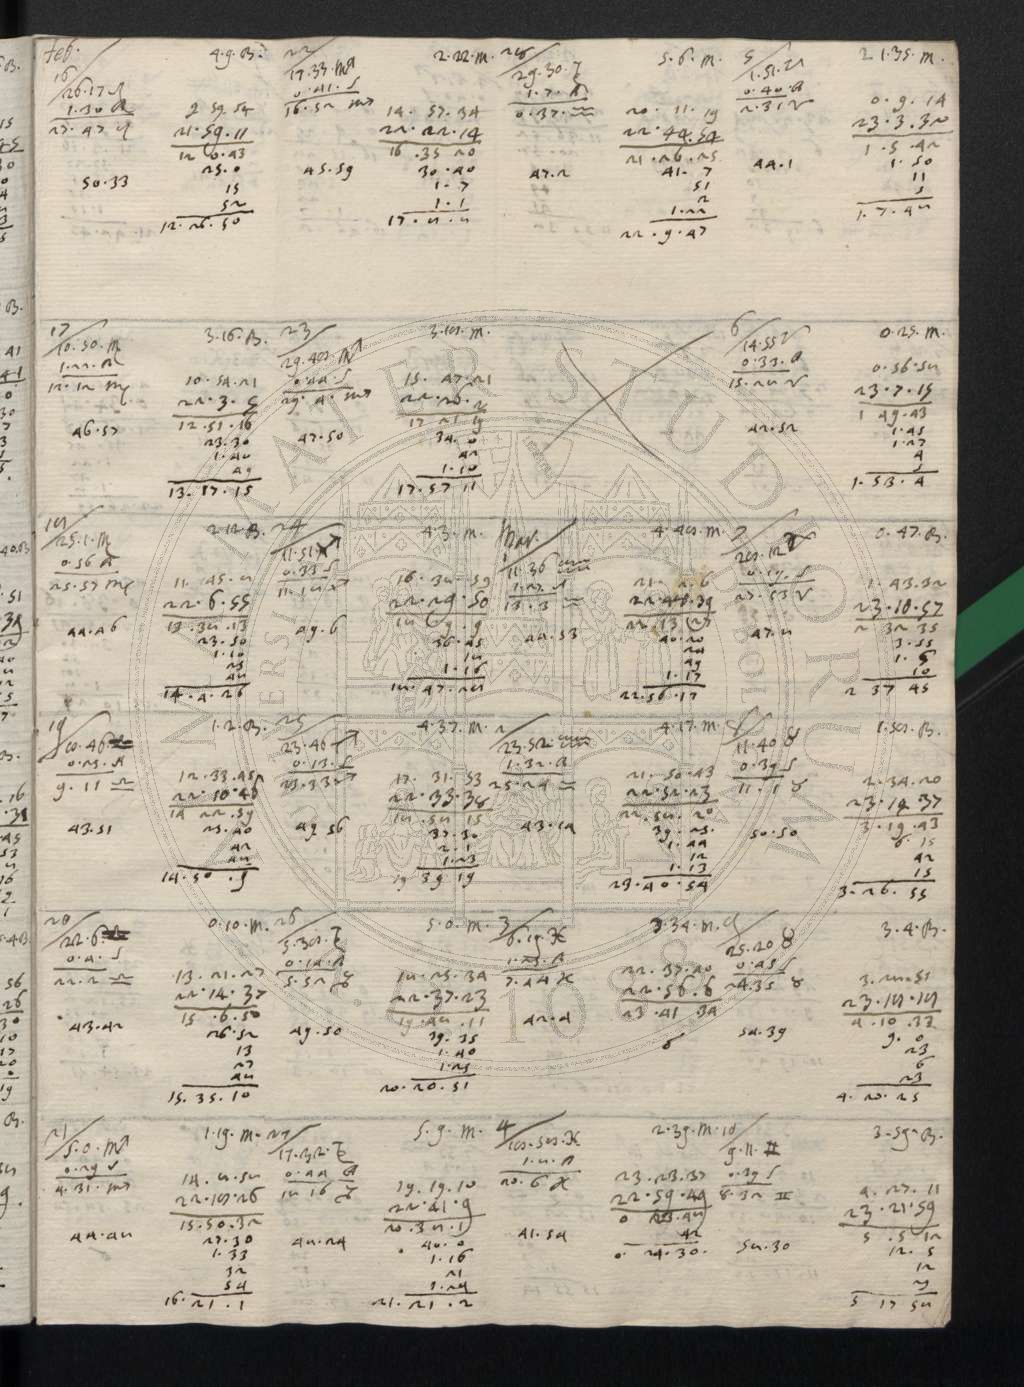 Feb.
16
26.17 ♌
1.30 A
27.47 ♌
50.33
4.9.B.
9 59 54
21.59.11
12 0.43
25.0
15
52
12.26.50
22
17.33.♏
0.41.S
16.52 ♏
45.59
2.22.m.
14.57.34
22.22.14
16.35 20
30.40
1.7
1.1
17.8.8
28
29.30.♑
1.7.A
0.37.♒
47.2
5.6.m.
20.11.19
22.44.54
21.26.25
41.7
51
2
1.22
22.9.47
5
1.51.♈
0.40.A
2.31 ♈
44.1
2 1.35.m.
0.9.14
23.3.32
1.5.42
1.50
11
5
1.7.48
17
10.50.♍
1.22.A
12.12 ♍
46.57
3.16.B.
10.54.21
22.3.5
12.51.16
23.30
1.40
49
13.17.15
23
29.48.♏
0.44.S
29.4.♏
47.50
3.18.m.
15.47.21
22.26.2
17 21 19
34.0
42
1.10
17.57 11
6
14.55 ♈
0.33.A
15.28 ♈
42.52
0.25.m.
0.56.58
23.7.15
1 49.43
1.45
1.27
4
5
1.53.4
18
25.1.♍
0.56 A
25.57 ♍
44.46
2.12.B.
11.45.8
22.6.55
13.38.13
23.50
1.10
25
48
14.4.26
24
11.51 ♐
0.33 S
11.18 ♐
49.6
4.3.m.
16.38.59
22.29.50
18 9.9
36.45
18
1.16
18.47.28
Mar.
1
11.36 ♒
1.27.A
13.3 ♒
44.53
4.48.m
21.2.6
22.48.39
22.13 27
40.20
24
49
1.17
22.56.17
7
28.12 ♈
0.19.S
27.53 ♈
47.8
0.47.B.
1.43.32
23.10.57
2 32 35
3.55
1.5
10
2 37 45
19
0.23.A
9.11 ♎
43.51
1.2.B.
12.33.45
22.10.46
14 22.59
25.40
42
48
14.50.9
25
23.46 ♐
0.13.S
23.33 ♐
49 56
4.37.m.
17.31.53
22.33.38
18.58 15
37.30
2.1
1.23
19 39 19
2
23.52 ♒
1.32.A
25.24 ♒
43.14
4.17.m.
21.50.43
22.52.23
22.58.20
39.25
1.44
12
1.13
23.40.54
8
11.40 ♉
0.39 S
11.1 ♉
50.50
1.58.B.
2.34.20
23.14 37
3.19.43
6.15
42
15
3.26.55
20
22.6
0.4.S
22.2 ♎
43.42
0.10.m.
13.21.27
22.14.37
15.6.50
26.52
13
27
48
15.35.10
26
0.14.A
5.52 ♑
49.50
5.0.m.
18.25.34
22.37.23
19.48.11
29.35
1.40
1.25
20.20.51
3
6.19 ♓
1.25.A
7.44 ♓
42.4
3.34.m.
22.37.40
22.56.6
23 41 34
9
25.20 ♉
0.45 S
24.35 ♉
54.39
3.4.B.
3.28.51
23.18.18
4.10.33
9.0
23
6
23
4.20.25
21
5.0.♏
0.29 S
4.31.♏
44.48
1.19.m.
14.8.58
22.18.26
15.50.32
27.30
1.33
32
54
16.21.1
27
17.32.♑
0.44 A
18 16 ♑
48.24
5.9.m.
19.19.10
22.41.9
20.38.1
40.0
1.16
21
1.24
21.21.2
4
18.58.♓
1.8.A
20.6 ♓
41.54
2.39.m.
23.23.37
22.59.49
0 23.48
42
0.24.30.
10
9.11 ♊
0.39 S
8.32 ♊
58.30
3.59.B.
4.27.11
23.21.59
5.5.12
12.5
12
29
5 17 58